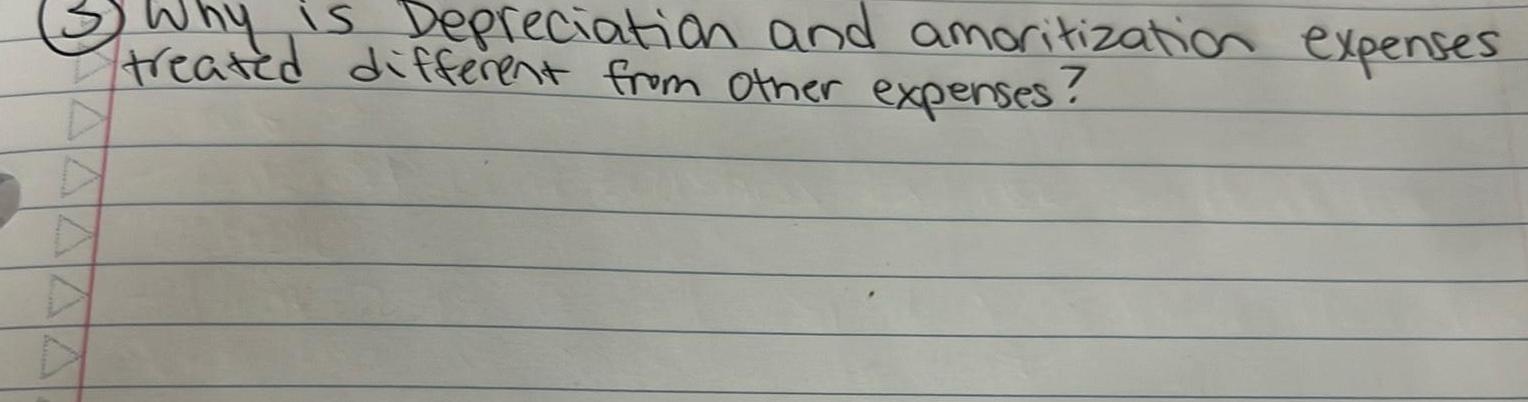 ③ Why is Depreciation and amoritization expenses
treated different from other expenses?